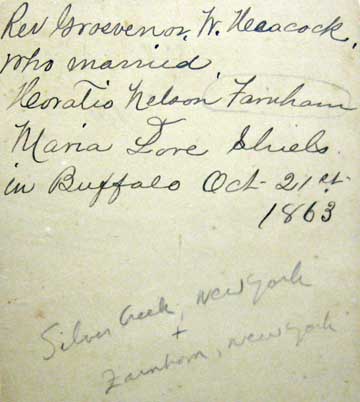 Rev Grosvenor. W. Heacock,
who married
Horatio Nelson Farnham
Maria Love Shiels.
in Buffalo Oct- 21st
1863
Silver Creek, New York
+
Farnham, New York